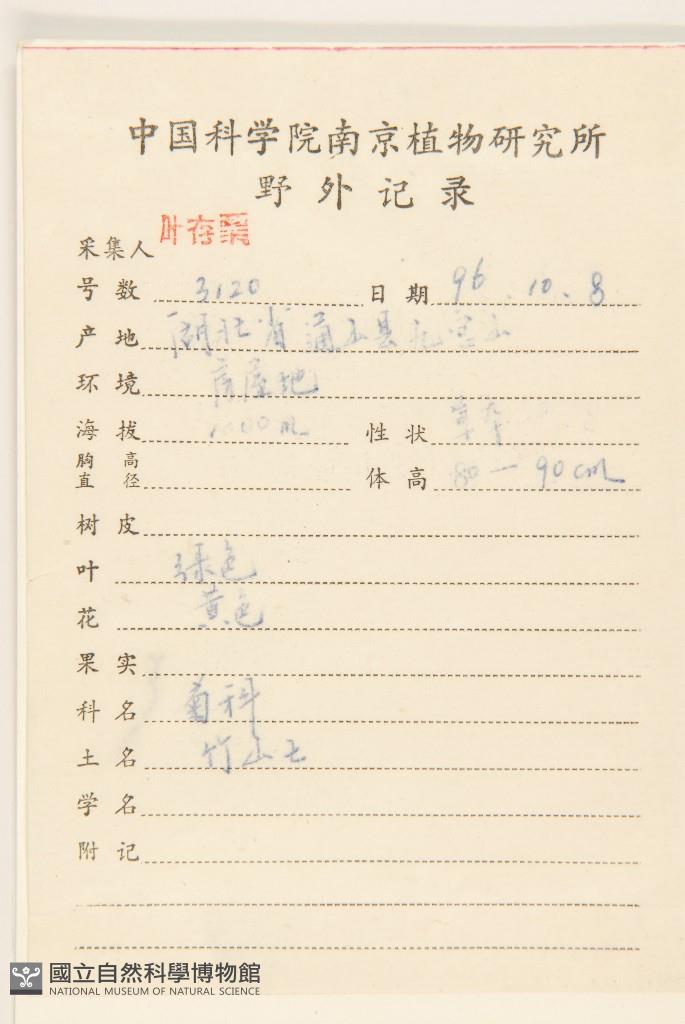 中国科学院南京植物研究所
野外记录
采集人 叶存粟
号数 3120 日期 96.10.8
产地 湖北省蒲圻县
环境 房屋地
海拔 1000m 性状 草本
胸高直径 体高 80—90cm
树皮
叶 绿色
花 黄色
果实
科名 菊科
土名 竹山七
学名
附记
國立自然科學博物館
NATIONAL MUSEUM OF NATURAL SCIENCE